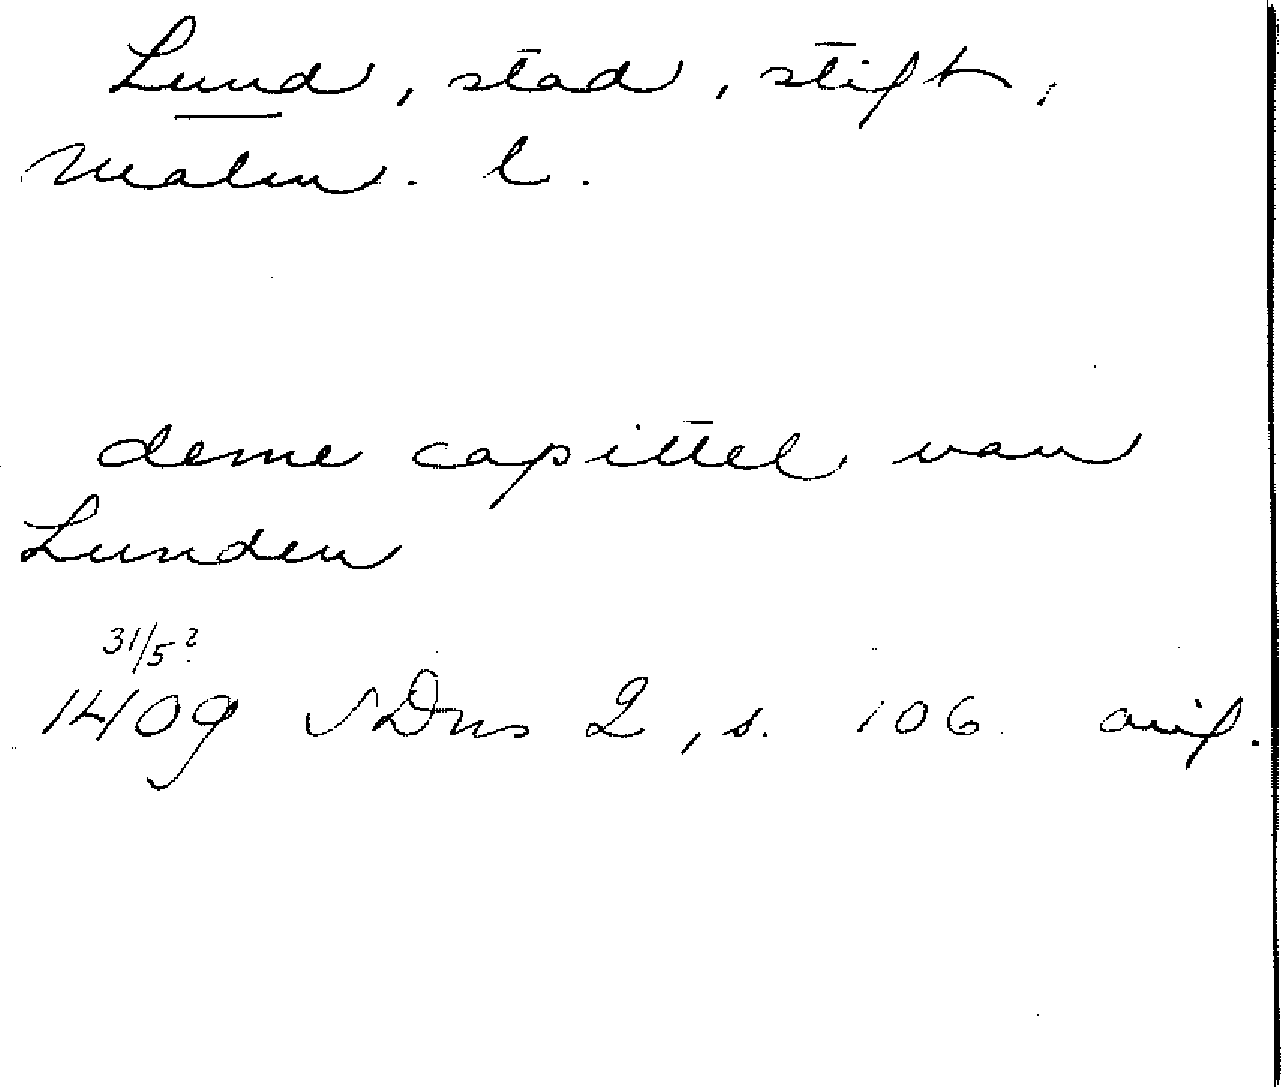 Lund, stad, stift,
Malm. l.
deme capittel van
Lunden
31/5?
1409 SDns 2, s. 106. avif.